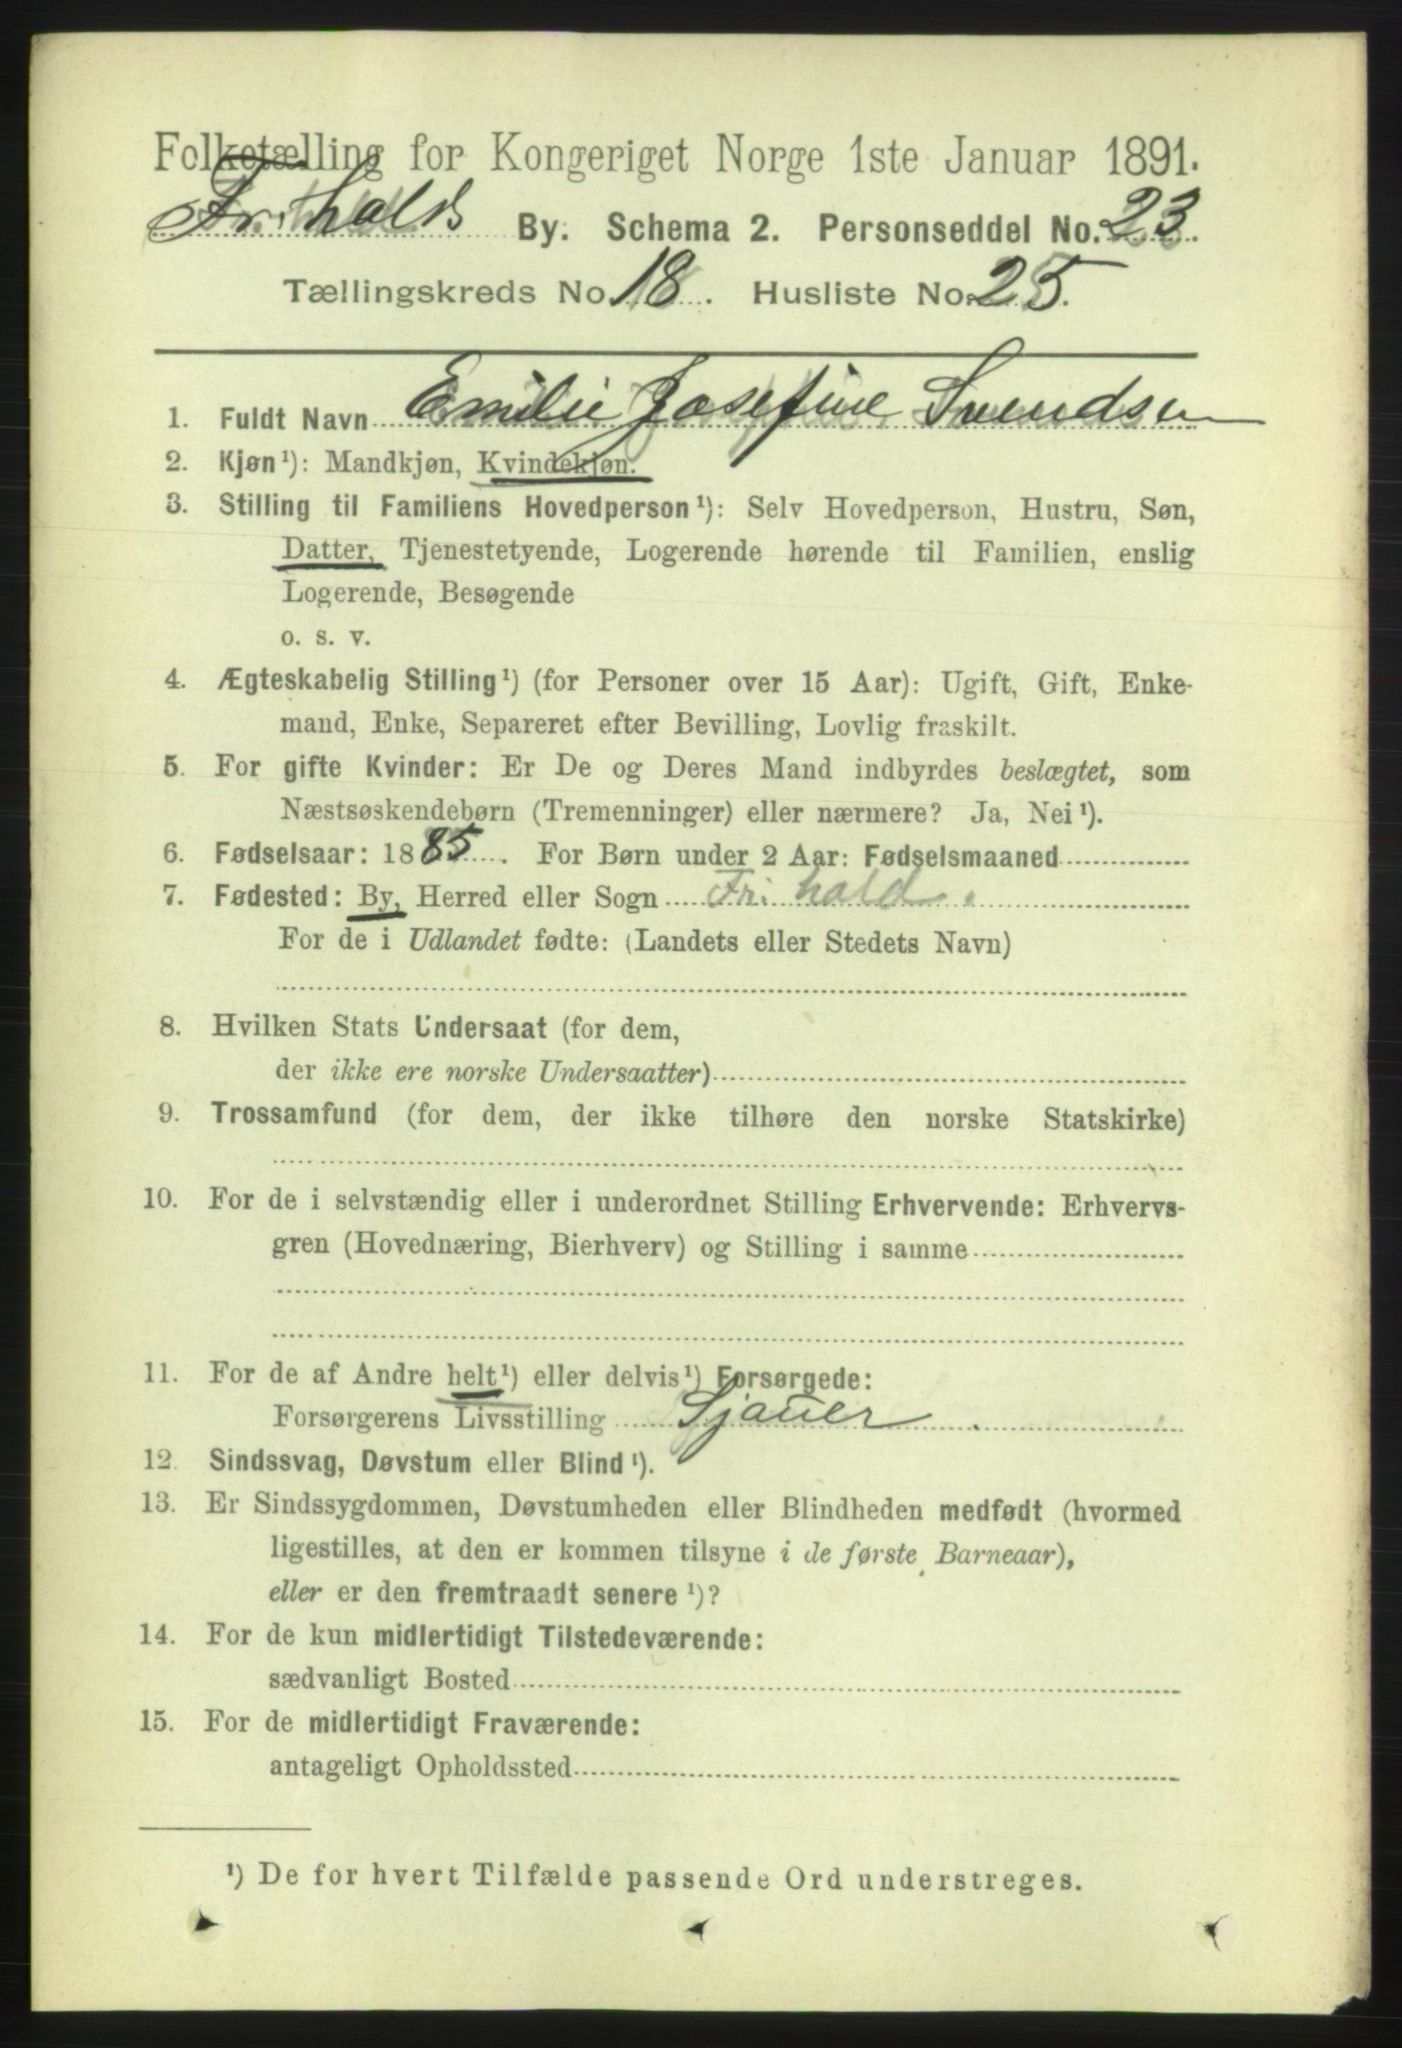 Folketælling for Kongeriget Norge 1ste Januar 1891.
Fr.halds By. Schema 2. Personseddel No. 23
Tællingskreds No. 18. Husliste No. 25.
1. Fuldt Navn Emilie Josefine Svendsen
2. Kjøn¹): Mandkjøn, Kvindekjøn.
3. Stilling til Familiens Hovedperson¹): Selv Hovedperson, Hustru, Søn,
Datter, Tjenestetyende, Logerende hørende til Familien, enslig
Logerende, Besøgende
o. s. v.
4. Ægteskabelig Stilling¹) (for Personer over 15 Aar): Ugift, Gift, Enke-
mand, Enke, Separeret efter Bevilling, Lovlig fraskilt.
5. For gifte Kvinder: Er De og Deres Mand indbyrdes beslægtet, som
Næstsøskendebørn (Tremenninger) eller nærmere? Ja, Nei¹).
6. Fødselsaar: 1885. For Børn under 2 Aar: Fødselsmaaned
7. Fødested: By, Herred eller Sogn Fr.hald.
For de i Udlandet fødte: (Landets eller Stedets Navn)
8. Hvilken Stats Undersaat (for dem,
der ikke ere norske Undersaatter)
9. Trossamfund (for dem, der ikke tilhøre den norske Statskirke)
10. For de i selvstændig eller i underordnet Stilling Erhvervende: Erhvervs-
gren (Hovednæring, Bierhverv) og Stilling i samme
11. For de af Andre helt¹) eller delvis¹) Forsørgede:
Forsørgerens Livsstilling Sjauer
12. Sindssvag, Døvstum eller Blind¹).
13. Er Sindssygdommen, Døvstumheden eller Blindheden medfødt (hvormed
ligestilles, at den er kommen tilsyne i de første Barneaar),
eller er den fremtraadt senere¹)?
14. For de kun midlertidigt Tilstedeværende:
sædvanligt Bosted
15. For de midlertidigt Fraværende:
antageligt Opholdssted
¹) De for hvert Tilfælde passende Ord understreges.